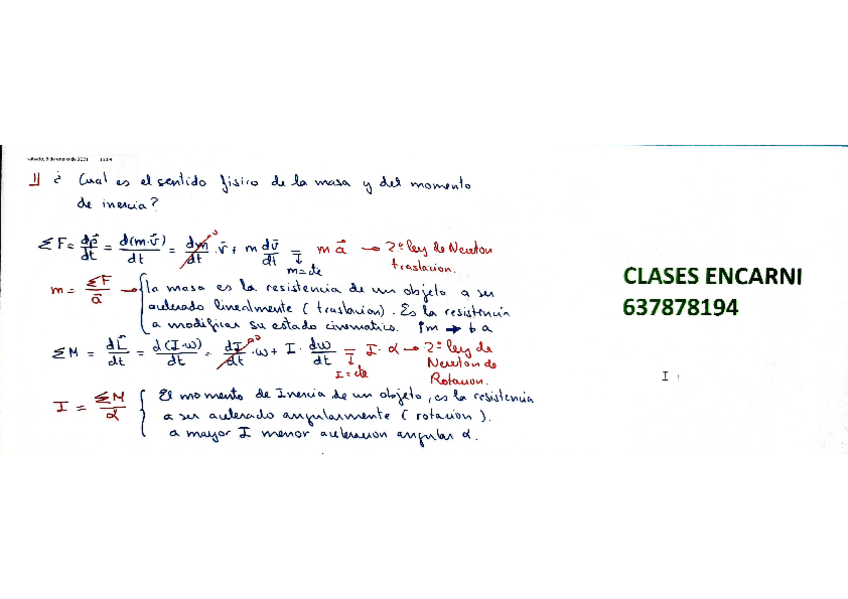 1) ¿ Cual es el sentido fisico de la masa y del momento
de inercia?
ΣF = dp⃗/dt = d(m·v⃗)/dt = dm/dt · v⃗ + m dv⃗/dt = m a⃗ → 2ª ley de Newton
m=cte
traslacion.
m = ΣF/a⃗ → la masa es la resistencia de un objeto a ser
acelerado linealmente ( traslacion). Es la resistencia
a modificar su estado cinematico. ↑m → ↓ a
ΣM = dL⃗/dt = d(I·ω)/dt = dI/dt ·ω + I · dω/dt = I · α → 2ª ley de
I=cte
Newton de
Rotacion.
I = ΣM/α El momento de Inercia de un objeto, es la resistencia
a ser acelerado angularmente ( rotacion ).
a mayor I menor aceleracion angular α.
CLASES ENCARNI
637878194